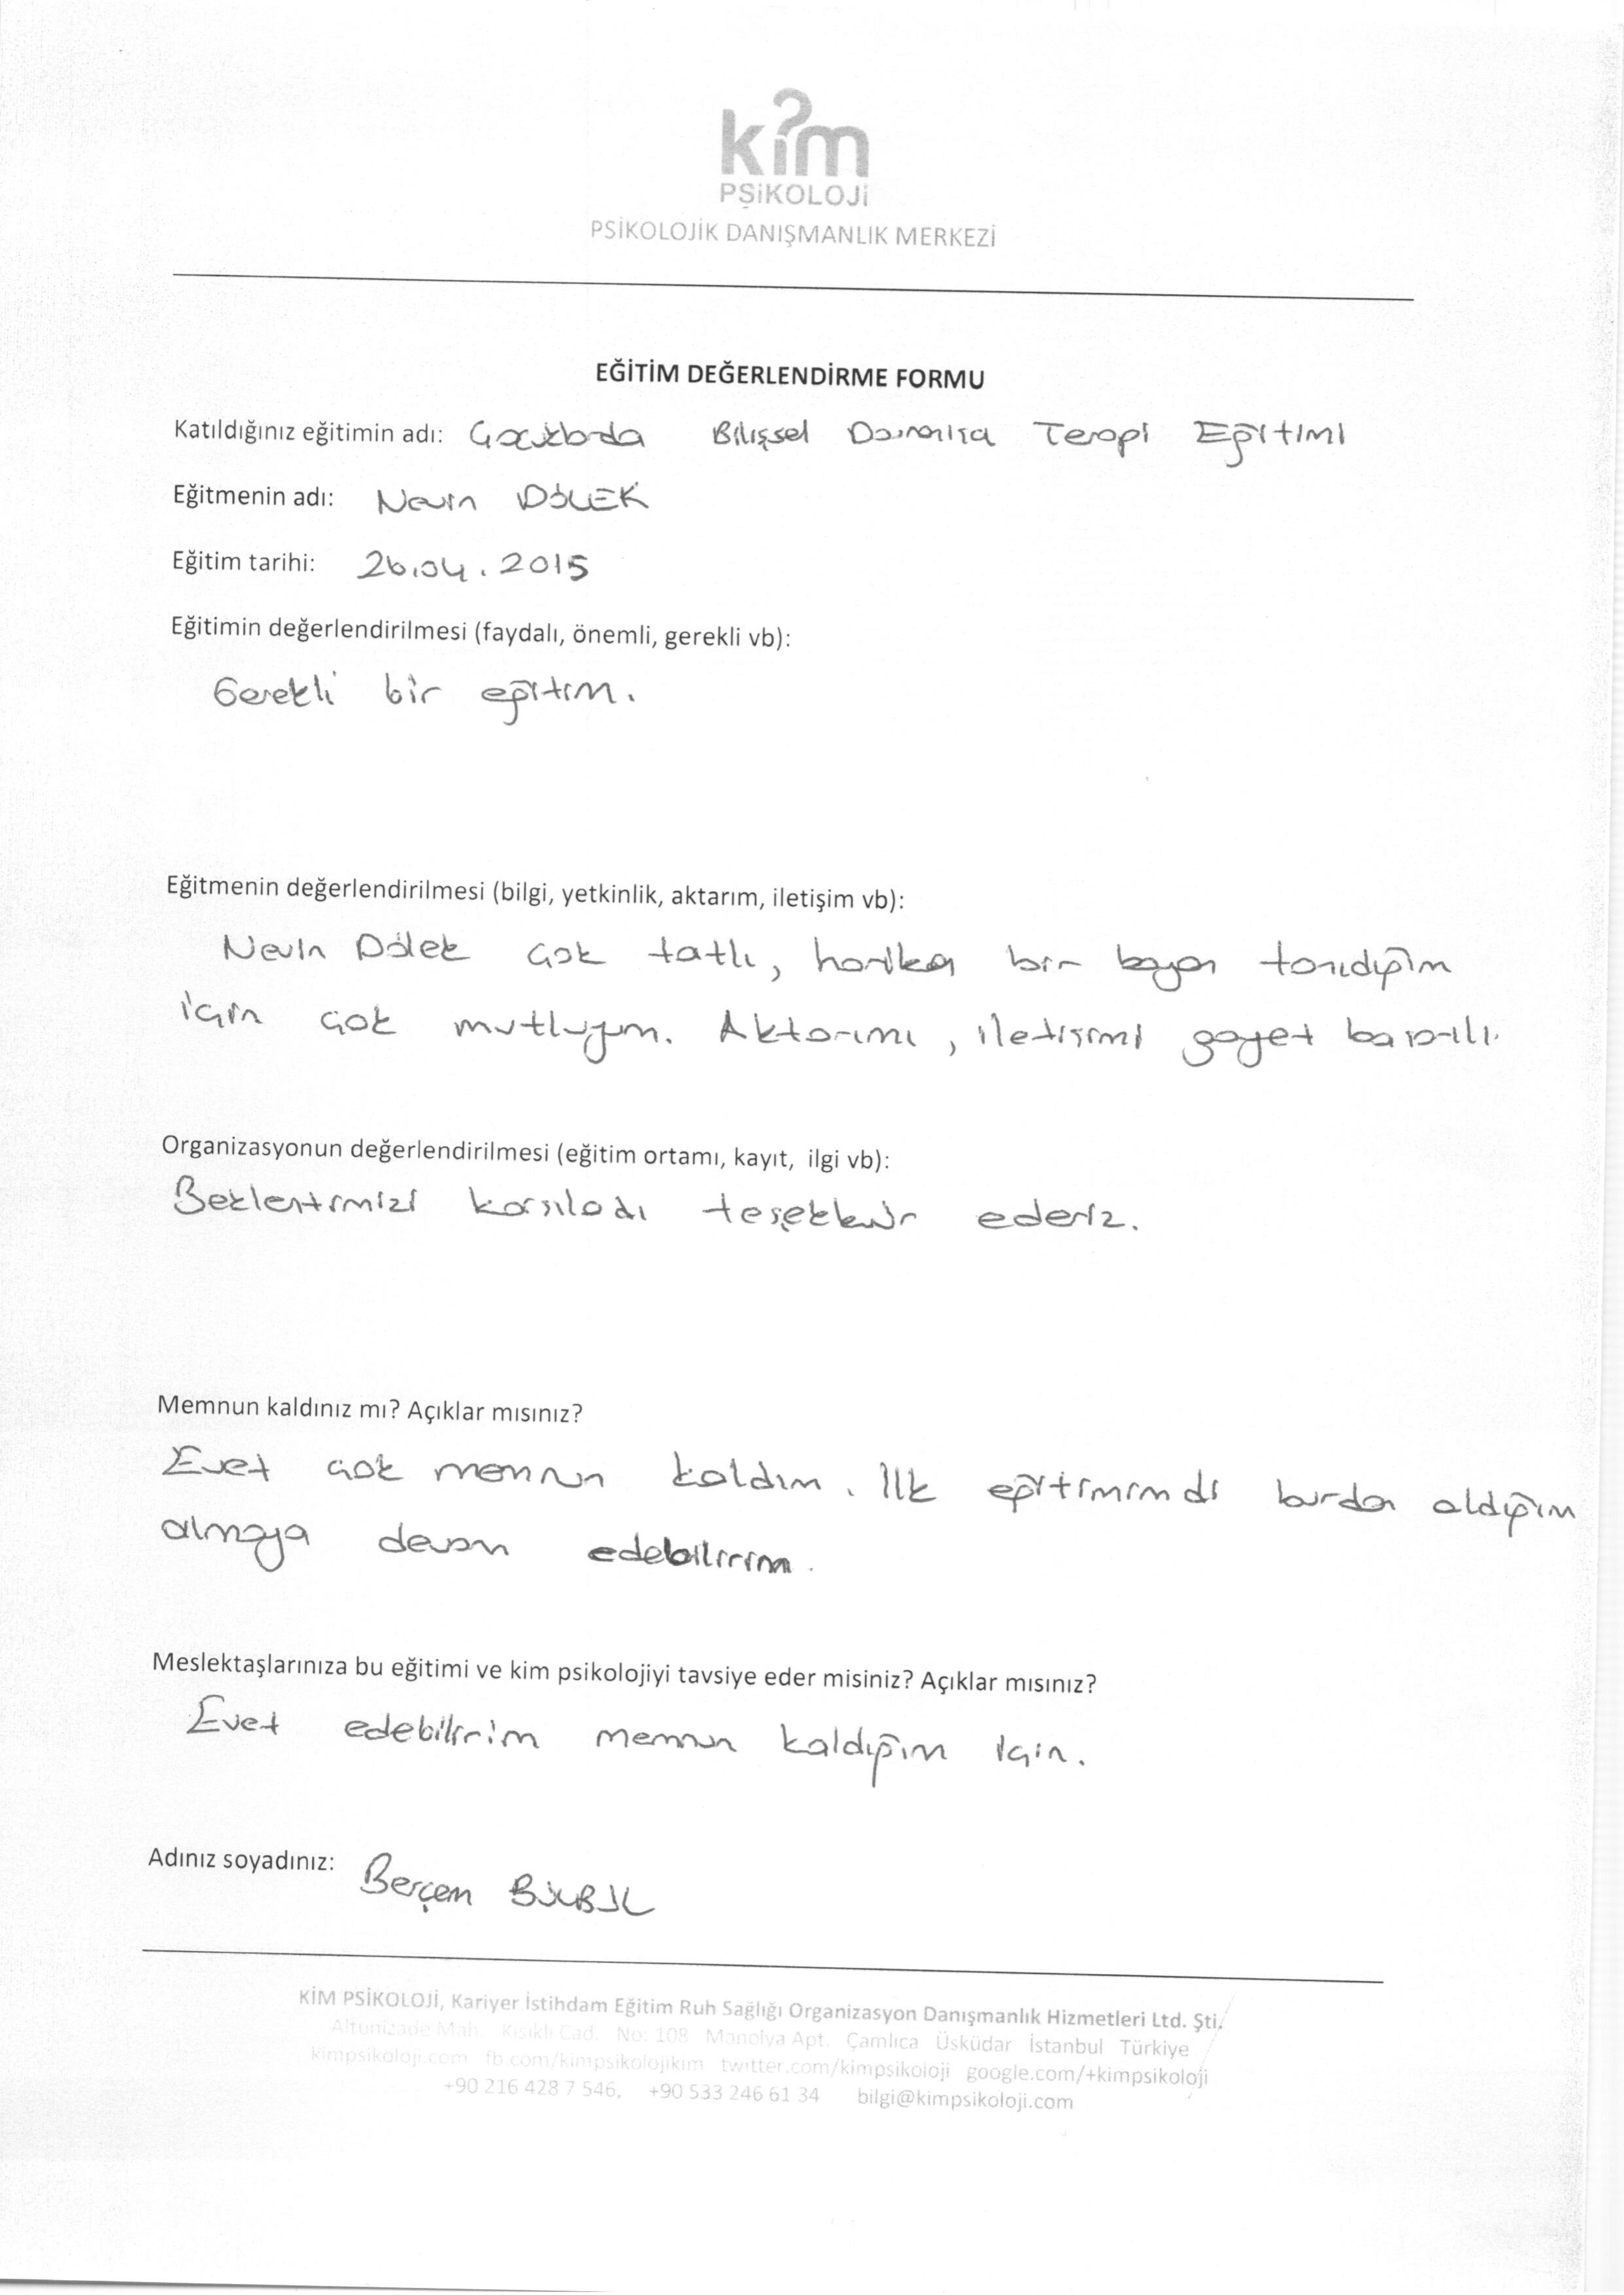 kim
PSİKOLOJİ
PSİKOLOJİK DANIŞMANLIK MERKEZİ
EĞİTİM DEĞERLENDİRME FORMU
Katıldığınız eğitimin adı: Çocuklarda Bilişsel Davranışçı Terapi Eğitimi
Eğitmenin adı: Nevin DÖLEK
Eğitim tarihi: 26.04.2015
Eğitimin değerlendirilmesi (faydalı, önemli, gerekli vb):
Gerekli bir eğitim.
Eğitmenin değerlendirilmesi (bilgi, yetkinlik, aktarım, iletişim vb):
Nevin Dölek çok tatlı, harika bir bayan tanıdığım
için çok mutluyum. Aktarımı, iletişimi gayet başarılı.
Organizasyonun değerlendirilmesi (eğitim ortamı, kayıt, ilgi vb):
Beklentimizi karşıladı teşekkür ederiz.
Memnun kaldınız mı? Açıklar mısınız?
Evet çok memnun kaldım. İlk eğitimimdi burdan aldığım
almaya devam edebilirim.
Meslektaşlarınıza bu eğitimi ve kim psikolojiyi tavsiye eder misiniz? Açıklar mısınız?
Evet edebilirim memnun kaldığım için.
Adınız soyadınız: Berçem BÜLBÜL
KİM PSİKOLOJİ, Kariyer İstihdam Eğitim Ruh Sağlığı Organizasyon Danışmanlık Hizmetleri Ltd. Şti.
Altunizade Mah. Kısıklı Cad. No: 108 Manolya Apt. Çamlıca Üsküdar İstanbul Türkiye
kimpsikoloji.com fb.com/kimpsikolojikim twitter.com/kimpsikoloji google.com/+kimpsikoloji
+90 216 428 7 546, +90 533 246 61 34 bilgi@kimpsikoloji.com